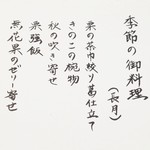 季節の御料理
(長月)
栗の茶巾絞り葛仕立て
きのこの碗物
秋の吹き寄せ
栗強飯
無花果のゼリー寄せ